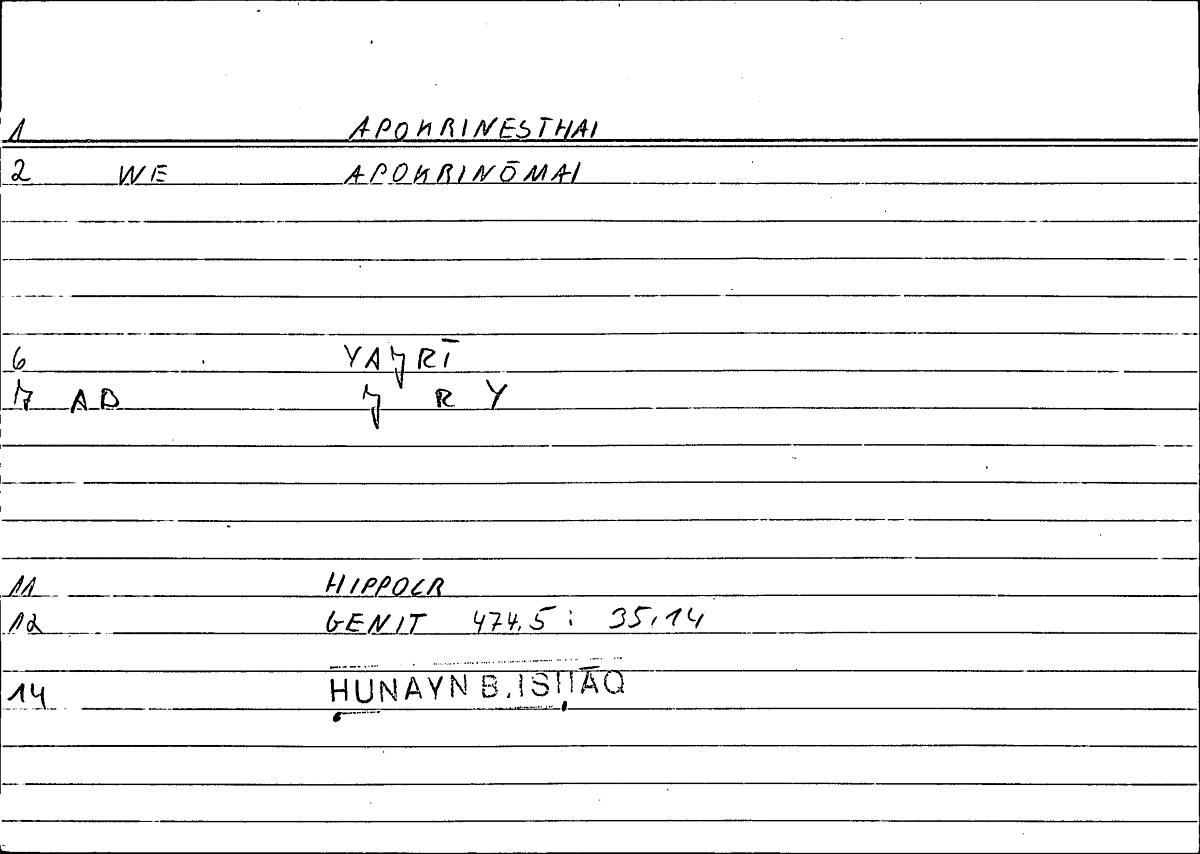 1 APOKRINESTHAI
2 WE APOKRINŌMAI
6 YAJRĪ
7 AD J R Y
11 HIPPOCR
12 GENIT 474,5 ; 35,14
14 ḤUNAYN B. ISḤĀQ